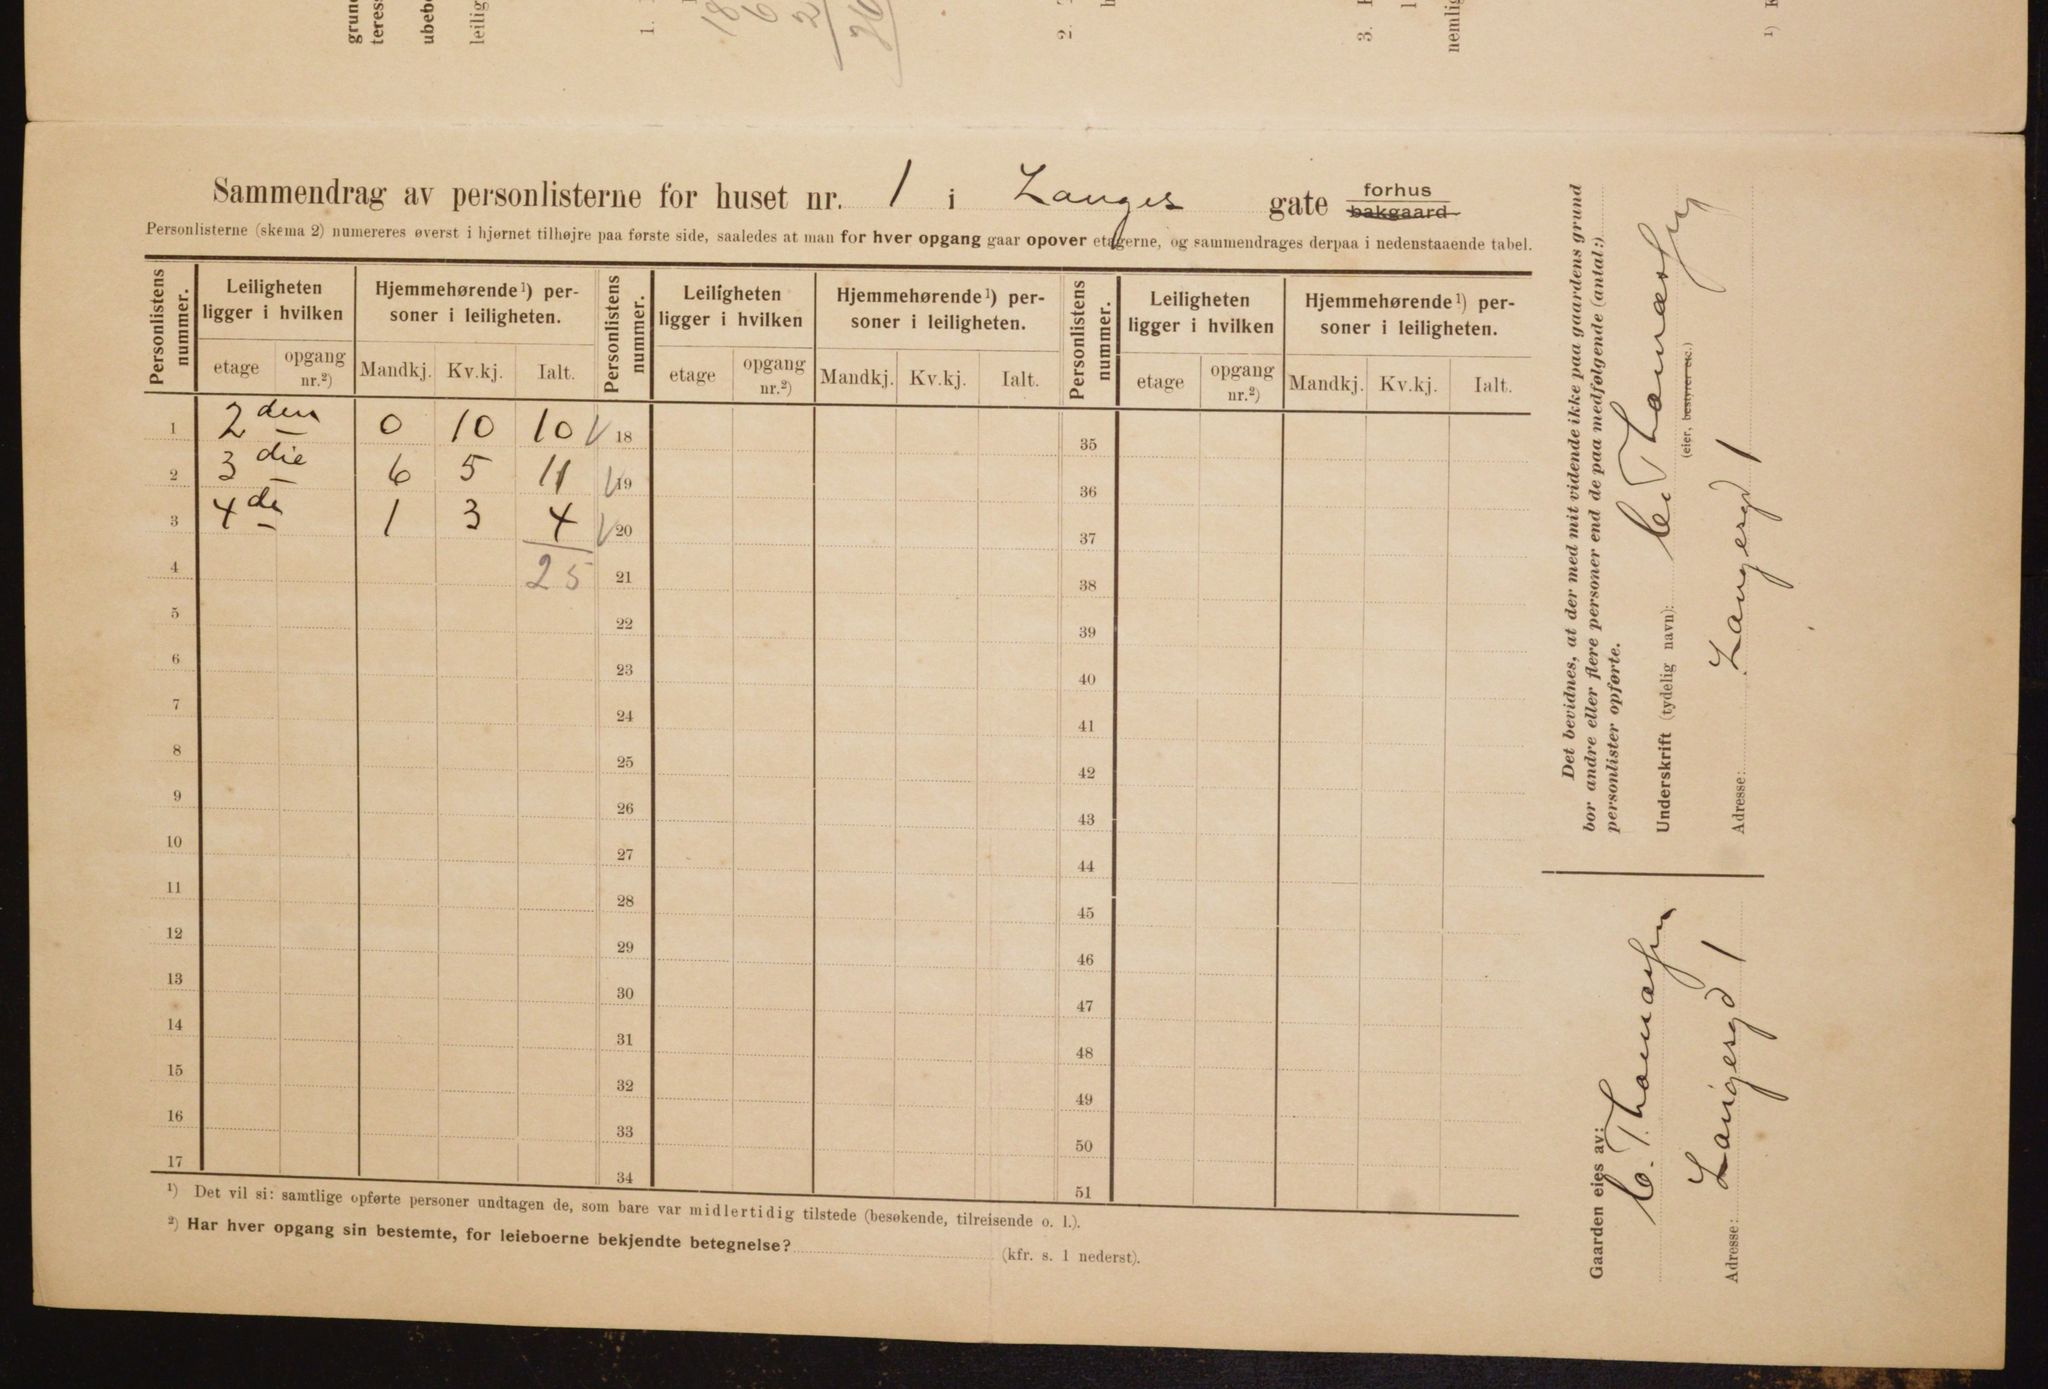 grund
teress
ubebo
leilig
1.
18
6
2
26
2.
3.
nemlig
1)
Sammendrag av personlisterne for huset nr. 1 i Langes gate forhus
bakgaard
Personlisterne (skema 2) numereres øverst i hjørnet tilhøjre paa første side, saaledes at man for hver opgang gaar opover etagerne, og sammendrages derpaa i nedenstaaende tabel.
Personlistens nummer. Leiligheten ligger i hvilken Hjemmehørende¹) personer i leiligheten. Personlistens nummer. Leiligheten ligger i hvilken Hjemmehørende¹) personer i leiligheten. Personlistens nummer. Leiligheten ligger i hvilken Hjemmehørende¹) personer i leiligheten.
etage opgang nr.²) Mandkj. Kv.kj. Ialt. etage opgang nr.²) Mandkj. Kv.kj. Ialt. etage opgang nr.²) Mandkj. Kv.kj. Ialt.
1 2den 0 10 10 √ 18 35
2 3die 6 5 11 √ 19 36
3 4de 1 3 4 √ 20 37
4 25 21 38
5 22 39
6 23 40
7 24 41
8 25 42
9 26 43
10 27 44
11 28 45
12 29 46
13 30 47
14 31 48
15 32 49
16 33 50
17 34 51
¹) Det vil si: samtlige opførte personer undtagen de, som bare var midlertidig tilstede (besøkende, tilreisende o. l.).
²) Har hver opgang sin bestemte, for leieboerne bekjendte betegnelse? (kfr. s. 1 nederst).
Det bevidnes, at der med mit vidende ikke paa gaardens grund
bor andre eller flere personer end de paa medfølgende (antal:)
personlister opførte.
Underskrift (tydelig navn): C. Thomassen
(eier, bestyrer etc.)
Adresse: Langesgd 1
Gaarden eies av:
C. Thomassen
Adresse: Langesgd 1